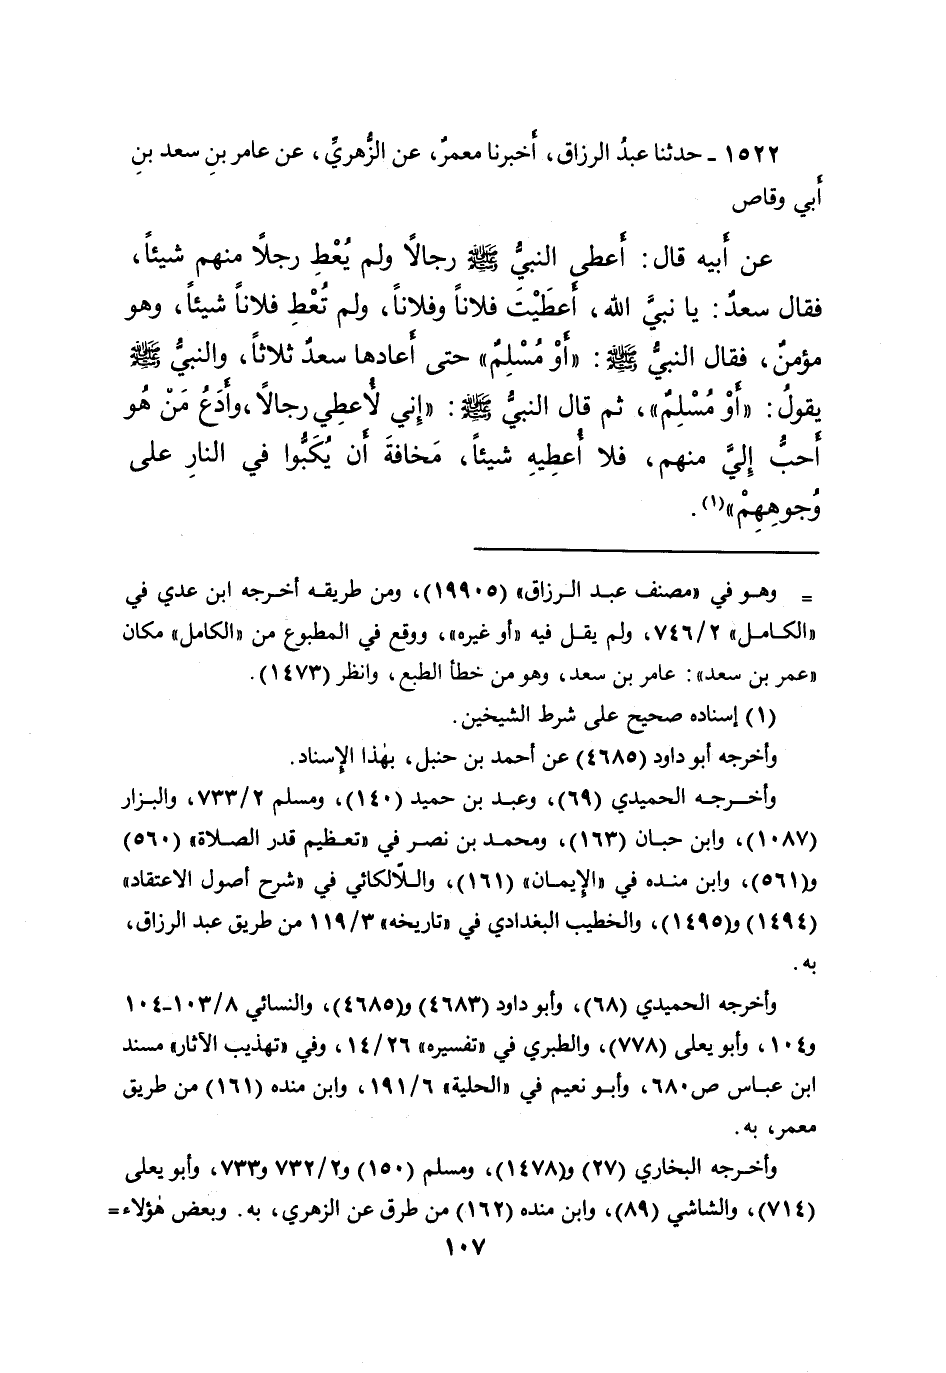 ١٥٢٢ ـ حدثنا عبدُ الرزاق، أَخبرنا معمرٌ، عن الزُّهريِّ، عن عامر بنِ سعد بنِ
أَبي وقاص
عن أَبيه قال: أَعطى النبيُّ ﷺ رجالًا ولم يُعْطِ رجلًا منهم شيئاً،
فقال سعدٌ: يا نبيَّ الله، أَعطَيْتَ فلاناً وفلاناً، ولم تُعْطِ فلاناً شيئاً، وهو
مؤمنٌ، فقال النبيُّ ﷺ: «أَوْ مُسْلِمٌ» حتى أَعادها سعدٌ ثلاثاً، والنبيُّ ﷺ
يقولُ: «أَوْ مُسْلِمٌ»، ثم قال النبيُّ ﷺ: «إني لَأُعطِي رجالًا،وأَدَعُ مَنْ هُو
أَحبُّ إليَّ منهم، فلا أُعطِيهِ شيئاً، مَخافةَ أَن يُكَبُّوا في النارِ على
وُجوهِهِمْ»(١).
= وهو في «مصنف عبد الرزاق» (١٩٩٠٥)، ومن طريقه أخرجه ابن عدي في
«الكامل» ٧٤٦/٢، ولم يقل فيه «أو غيره»، ووقع في المطبوع من «الكامل» مكان
«عمر بن سعد»: عامر بن سعد، وهو من خطأ الطبع، وانظر (١٤٧٣).
(١) إسناده صحيح على شرط الشيخين.
وأخرجه أبو داود (٤٦٨٥) عن أحمد بن حنبل، بهٰذا الإسناد.
وأخرجه الحميدي (٦٩)، وعبد بن حميد (١٤٠)، ومسلم ٧٣٣/٢، والبزار
(١٠٨٧)، وابن حبان (١٦٣)، ومحمد بن نصر في «تعظيم قدر الصلاة» (٥٦٠)
و(٥٦١)، وابن منده في «الإيمان» (١٦١)، واللّالكائي في «شرح أصول الاعتقاد»
(١٤٩٤) و(١٤٩٥)، والخطيب البغدادي في «تاريخه» ١١٩/٣ من طريق عبد الرزاق،
به.
وأخرجه الحميدي (٦٨)، وأبو داود (٤٦٨٣) و(٤٦٨٥)، والنسائي ١٠٣/٨-١٠٤
و١٠٤، وأبو يعلى (٧٧٨)، والطبري في «تفسيره» ١٤/٢٦، وفي «تهذيب الآثار» مسند
ابن عباس ص٦٨٠، وأبو نعيم في «الحلية» ١٩١/٦، وابن منده (١٦١) من طريق
معمر، به.
وأخرجه البخاري (٢٧) و(١٤٧٨)، ومسلم (١٥٠) و٧٣٢/٢ و٧٣٣، وأبو يعلى
(٧١٤)، والشاشي (٨٩)، وابن منده (١٦٢) من طرق عن الزهري، به. وبعض هٰؤلاء=
١٠٧